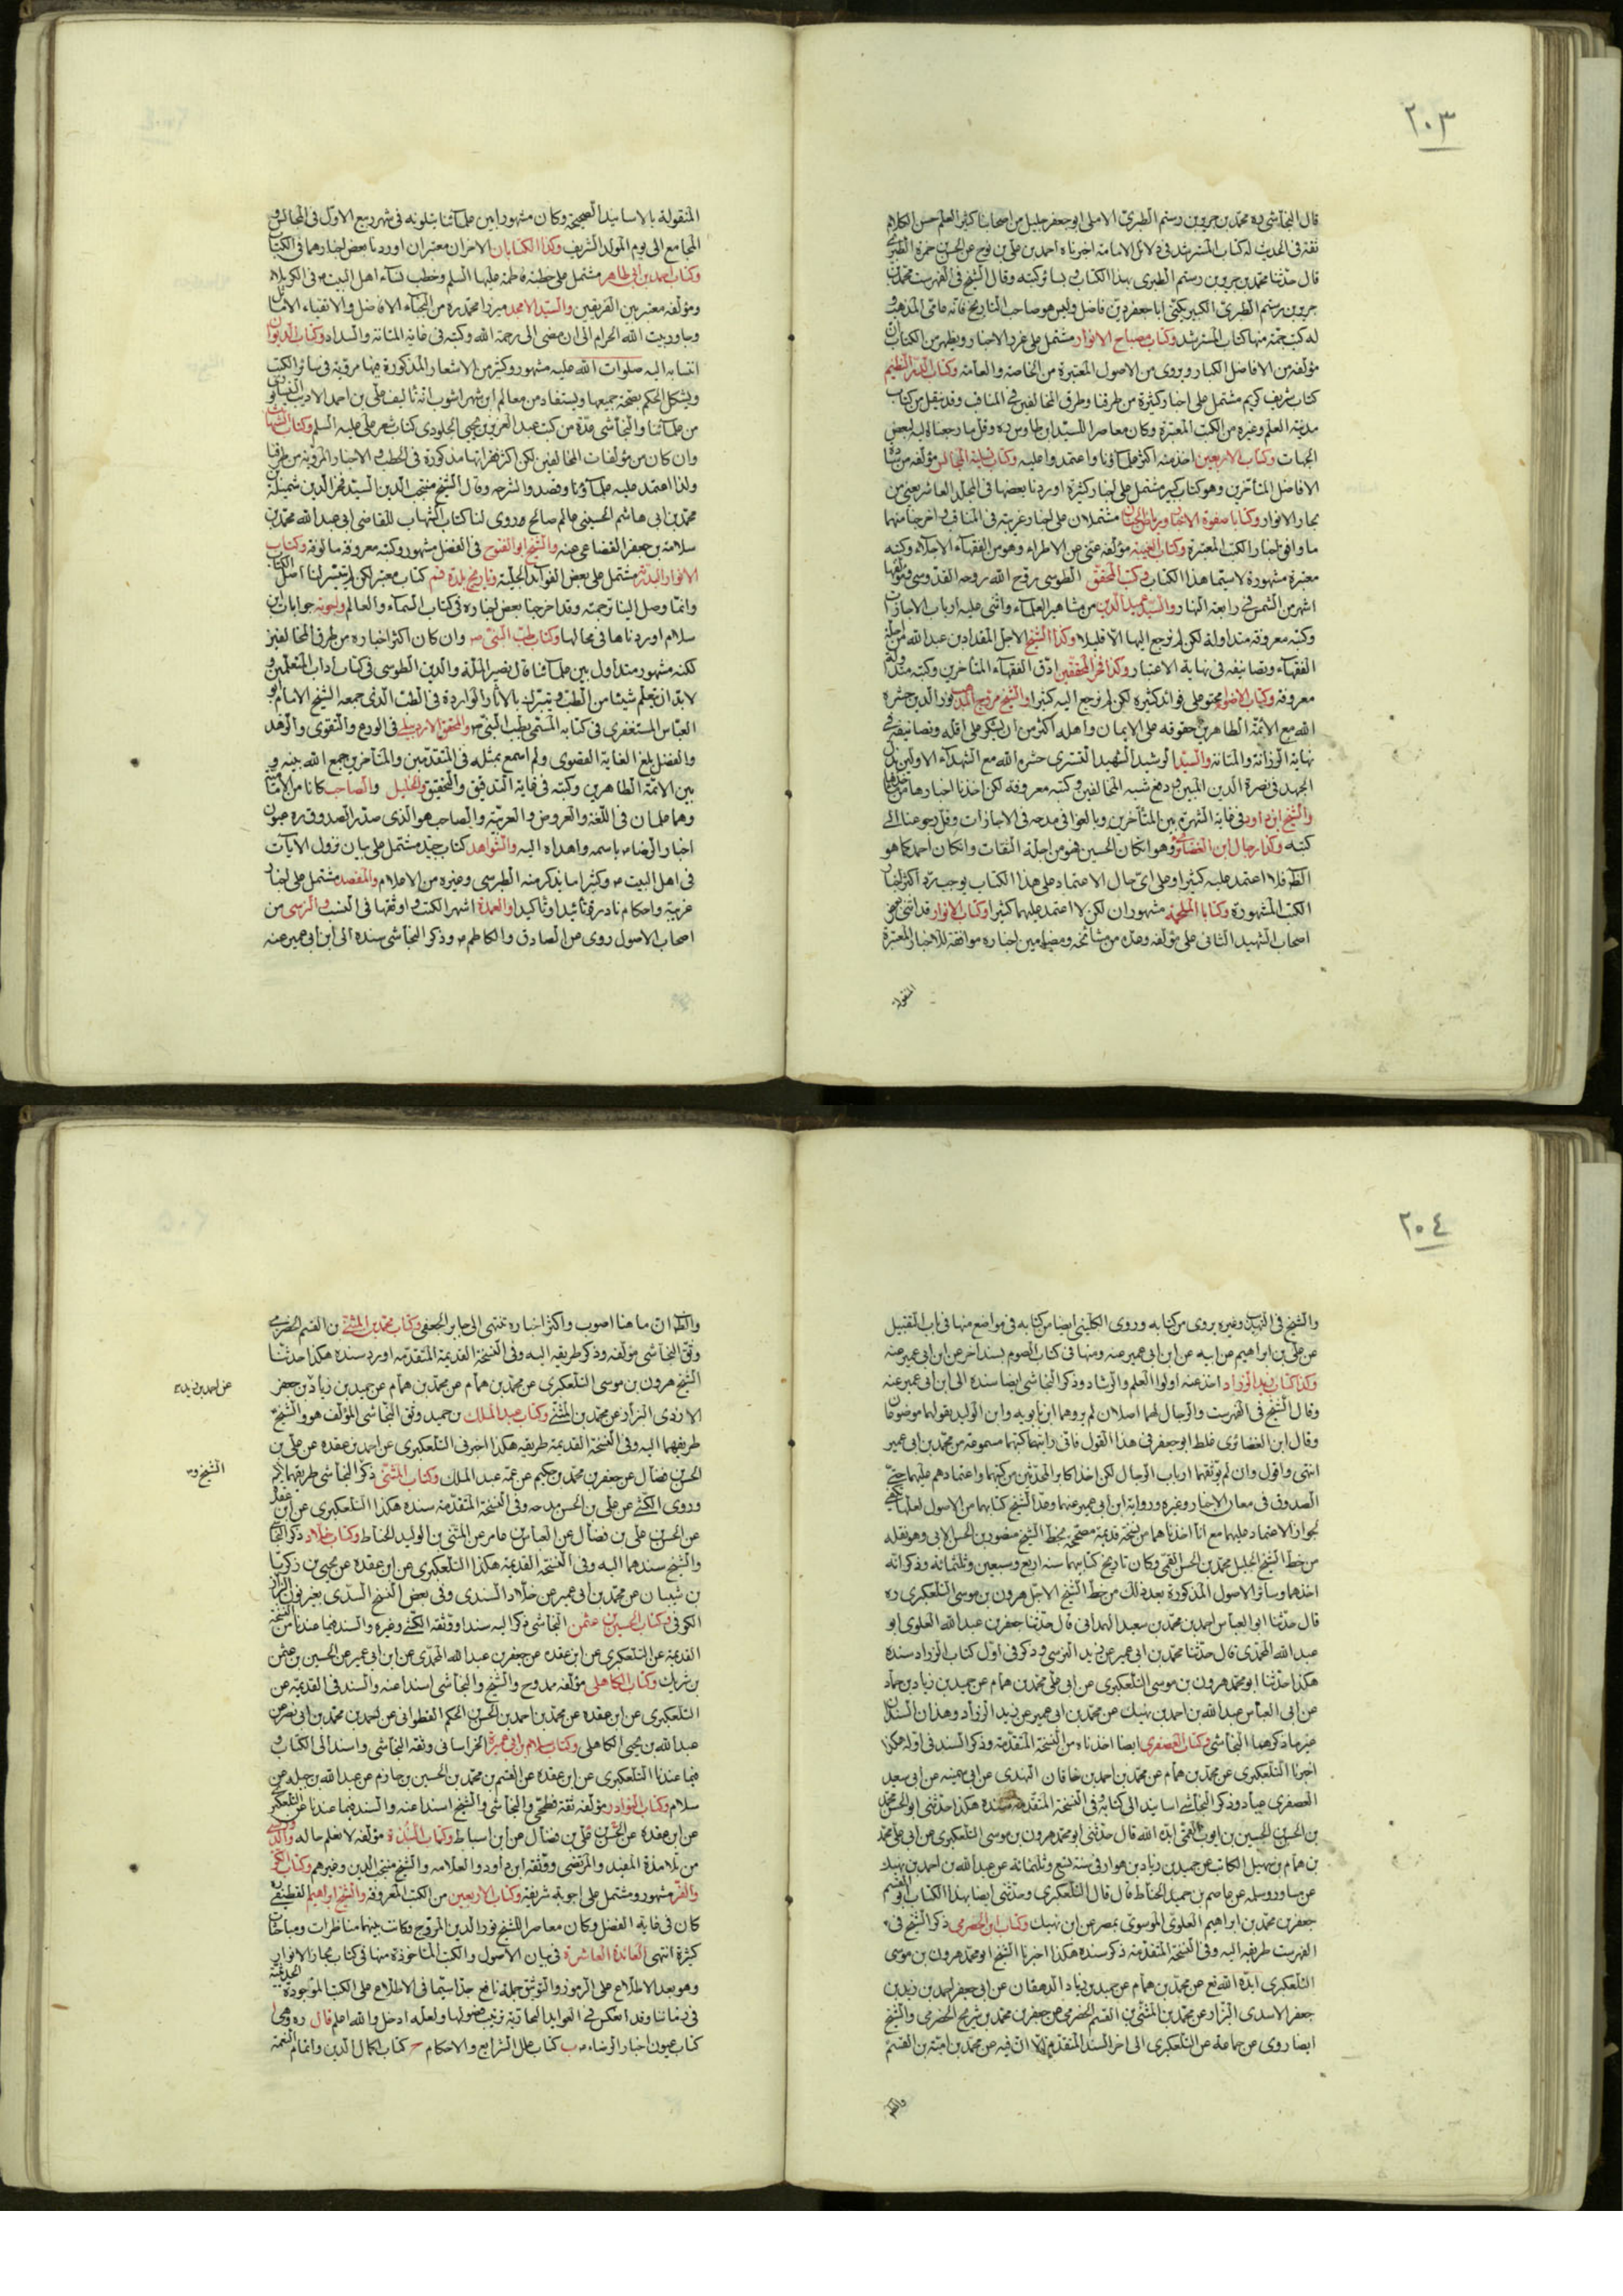 ٢٠٣
قال النجاشي ره محمد بن جرير بن رستم الطبري الاملي ابو جعفر جليل من اصحابنا كثير العلم حسن الكلام
ثقة في الحديث له كتاب المسترشد في دلائل الامامة اخبرناه احمد بن علي بن نوح عن الحسن بن حمزة الطبري
قال حدثنا محمد بن جرير بن رستم الطبري بهذا الكتاب و بسائر كتبه وقال الشيخ في الفهرست محمد بن
جرير بن رستم الطبري الكبير يكنى ابا جعفر دين فاضل وليس هو صاحب التاريخ فانه عامي المذهب
له كتب جمة منها كتاب المسترشد وكتاب مصباح الانوار مشتمل على غرر الاخبار ويظهر من الكتاب ان
مؤلفه من الافاضل الكبار ويروي من الاصول المعتبرة من الخاصة والعامة وكتاب الدر النظيم
كتاب شريف كريم مشتمل على اخبار كثيرة من طرقنا وطرق المخالفين في المناقب وقد ينقل من كتاب
مدينة العلم وغيره من الكتب المعتبرة وكان معاصرا للسيد ابن طاوس ره وقل ما رجعنا اليه لبعض
الجهات وكتاب الاربعين اخذ منه اكثر علمآؤنا واعتمدوا عليه وكتاب تسلية المجالس مؤلفه من سادة
الافاضل المتأخرين وهو كتاب كبير مشتمل على اخبار كثيرة اوردنا بعضها في المجلد العاشر يعني من
بحار الانوار وكتابا صفوة الاخبار ورياض الجنان مشتملان على اخبار غريبة في المناقب واخرجنا منهما
ما وافق اخبار الكتب المعتبرة وكتاب الغيبة مؤلفه غني عن الاطراء وهو من الفقهآء الاجلاء وكتبه
معتبرة مشهورة لا سيما هذا الكتاب وكتب المحقق الطوسي روح الله روحه القدوسي ومؤلفها
اشهر من الشمس في رابعة النهار والسيد عميد الدين من مشاهير العلمآء واثنى عليه ارباب الاجازات
وكتبه معروفة متداولة لكن لم نرجع اليها الا قليلا وكذا الشيخ الاجل المقداد بن عبدالله من اجلة
الفقهآء وتصانيفه في نهاية الاعتبار وكذا فخر المحققين ادق الفقهآء المتأخرين وكتبه متداولة
معروفة وكتاب الاضواء محتو على فوائد كثيرة لكن لم نرجع اليه كثيرا والشيخ مروج المذهب نور الدين حشره
الله مع الائمة الطاهرين حقوقه على الايمان واهله اكثر من ان يشكر على اقله وتصانيفه في
نهاية الرزانة والمتانة والسيد الرشيد الشهيد التستري حشره الله مع الشهدآء الاولين بذل
الجهد في نصرة الدين المبين ودفع شبه المخالفين وكتبه معروفة لكن اخذنا اخبارها من مأخذها
والشيخ ابن داود في غاية الشهرة بين المتأخرين وبالغوا في مدحه في الاجازات وقل رجوعنا الى
كتبه وكذا رجال ابن الغضائري وهو ان كان الحسين فهو من اجلة الثقات وان كان احمد كما هو
الظ فلا اعتمد عليه كثيرا وعلى اي حال الاعتماد على هذا الكتاب يوجب رد اكثر اخبار
الكتب المشهورة وكتابا الملحمة مشهوران لكن لا اعتمد عليهما كثيرا وكتاب الانوار قد اثنى بعض
اصحاب الشهيد الثاني على مؤلفه وعده من مشائخه ومضامين اخباره موافقة للاخبار المعتبرة
المنقولة
المنقولة بالاسانيد الصحيحة وكان مشهورا بين علمآئنا يتلونه في شهر ربيع الاول في المجالس و
المجامع الى يوم المولد الشريف وكذا الكتابان الاخران معتبران اوردنا بعض اخبارهما في الكتاب
وكتاب احمد بن ابي طاهر مشتمل على خطبة فاطمة عليها السلم وخطب نسآء اهل البيت ع في الكربلاء
ومؤلفه معتبر بين الفريقين والسيد الامجد ميرزا محمد ره من النجبآء الافاضل والاتقياء الاماثل
وجاور بيت الله الحرام الى ان مضى الى رحمة الله وكتبه في غاية المتانة والسداد وكتاب الديوان
انتسابه اليه صلوات الله عليه مشهور وكثير من الاشعار المذكورة فيها مروية في سائر الكتب
ويشكل الحكم بصحة جميعها ويستفاد من معالم ابن شهراشوب انه تاليف علي بن احمد الاديب النيسابوري
من علمآئنا والنجاشي عد من كتب عبد العزيز بن يحيى الجلودي كتاب شعر علي عليه السلم وكتاب الشهاب
وان كان من مؤلفات المخالفين لكن اكثر فقراتها مذكورة في الخطب و الاخبار المروية من طرقنا
ولذا اعتمد عليه علمآؤنا وتصدوا لشرحه وقال الشيخ منتجب الدين السيد فخر الدين شميلة بن
محمد بن ابي هاشم الحسيني عالم صالح وروى لنا كتاب الشهاب للقاضي ابي عبدالله محمد بن
سلامة بن جعفر القضاعي عنه والشيخ ابو الفتوح في الفضل مشهور وكتبه معروفة مالوفة وكتاب
الانوار البدرية مشتمل على بعض الفوائد الجلية وتاريخ بلدة قم كتاب معتبر لكن لم يتيسر لنا اصل الكتاب
وانما وصل الينا ترجمته وقد اخرجنا بعض اخباره في كتاب السمآء والعالم واجوبة جوابات ابن
سلام اوردناها في محالها وكتاب طب النبي ص وان كان اكثر اخباره من طرق المخالفين
لكنه مشهور متداول بين علمآئنا قال نصير الملة والدين الطوسي في كتاب اداب المتعلمين و
لا بد ان يتعلم شيئا من الطب و يتبرك بالآثار الواردة في الطب الذي جمعه الشيخ الامام ابو
العباس المستغفري في كتابه المسمى بطب النبي ص والمحقق الاردبيلي في الورع والتقوى والزهد
والفضل بلغ الغاية القصوى ولم اسمع بمثله في المتقدمين والمتأخرين جمع الله بينه و
بين الائمة الطاهرين وكتبه في غاية التدقيق والتحقيق والخليل والصاحب كانا من الامامية
وهما علمان في اللغة والعروض والعربية والصاحب هو الذي صدر الصدوق ره عيون
اخبار الرضا ع باسمه واهداه اليه والشواهد كتاب جيد مشتمل على بيان نزول الآيات
في اهل البيت ع وكثيرا ما يذكر منه الطبرسي وغيره من الاعلام والمقصد مشتمل على اخبار
غريبة واحكام نادرة تأئيدا وتأكيدا والعمدة اشهر الكتب واوثقها في النسب والنرسي من
اصحاب الاصول روى عن الصادق والكاظم ع وذكر النجاشي سنده الى ابن ابي عمير عنه
٢٠٤
والشيخ في التهذيب وغيره يروي من كتابه وروى الكليني ايضا من كتابه في مواضع منها في باب التقبيل
عن علي بن ابراهيم عن ابيه عن ابن ابي عمير عنه ومنها في كتاب الصوم بسند اخر عن ابن ابي عمير عنه
وكذا كتاب زيد الزراد اخذ عنه اولوا العلم والرشاد وذكر النجاشي ايضا سنده الى ابن ابي عمير عنه
وقال الشيخ في الفهرست والرجال لهما اصلان لم يروهما ابن بابويه وابن الوليد يقولهما موضوعان
وقال ابن الغضائري غلط ابو جعفر في هذا القول فاني رايت كتبهما مسموعة من محمد بن ابي عمير
انتهى واقول وان لم يوثقهما ارباب الرجال لكن اخذ اكابر المحدثين من كتبهما واعتمادهم عليهما حتى
الصدوق في معاني الاخبار وغيره ورواية ابن ابي عمير عنهما وعد الشيخ كتابهما من الاصول لعلها تكفي
لجواز الاعتماد عليهما مع انا اخذناهما من نسخة قديمة مصححة بخط الشيخ منصور بن الحسن الابي وهو نقله
من خط الشيخ الجليل محمد بن الحسن القمي وكان تاريخ كتابتهما سنة اربع وسبعين وثلثمائة وذكر انه
اخذهما وسائر الاصول المذكورة بعد ذلك من خط الشيخ الاجل هرون بن موسى التلعكبري ره
قال حدثنا ابو العباس احمد بن محمد بن سعيد الهمداني قال حدثنا جعفر بن عبدالله العلوي ابو
عبدالله المحمدي قال حدثنا محمد بن ابي عمير عن زيد النرسي وذكر في اول كتاب الزراد سنده
هكذا حدثنا ابو محمد هرون بن موسى التلعكبري عن ابي علي محمد بن همام عن حميد بن زياد بن حماد
عن ابي العباس عبدالله بن احمد بن نهيك عن محمد بن ابي عمير عن زيد الزراد وهذان السندان
غير ما ذكرهما النجاشي وكتاب العصفري ايضا اخذناه من النسخة المتقدمة وذكر السند في اوله هكذا
اخبرنا التلعكبري عن محمد بن همام عن محمد بن احمد بن خاقان النهدي عن ابي سمينة عن ابي سعيد
العصفري عباد وذكر النجاشي اسانيد الى كتابه وفي النسخة المتقدمة سنده هكذا حدثني ابو الحسن محمد
بن الحسن بن الحسين بن ايوب القمي ايده الله قال حدثني ابو محمد هرون بن موسى التلعكبري عن ابي علي محمد
بن همام بن سهيل الكاتب عن حميد بن زياد بن هوارا في سنة تسع وثلثمائة عن عبدالله بن احمد بن نهيك
عن مساور وسلمة عن عاصم بن حميد الحناط قال قال التلعكبري وحدثني ايضا بهذا الكتاب ابو القسم
جعفر بن محمد بن ابراهيم العلوي الموسوي بمصر عن ابن نهيك وكتاب ابن الحضرمي ذكر الشيخ في
الفهرست طريقه اليه وفي النسخة المتقدمة ذكر سنده هكذا اخبرنا الشيخ ابو محمد هرون بن موسى
التلعكبري ايده الله تع عن محمد بن همام عن حميد بن زياد الدهقان عن ابي جعفر احمد بن زيد بن
جعفر الاسدي البزاز عن محمد بن المثنى بن القسم الحضرمي عن جعفر بن محمد بن شريح الحضرمي والشيخ
ايضا روى عن جماعة عن التلعكبري الى اخر السند المتقدم الا ان فيه عن محمد بن امية بن القسم
والظ
والظ ان ما هنا اصوب واكثر اخباره تنتهي الى جابر الجعفي وكتاب محمد بن المثنى بن القسم الحضرمي
وثق النجاشي مؤلفه وذكر طريقه اليه وفي النسخة القديمة المتقدمة اورد سنده هكذا حدثنا
الشيخ هرون بن موسى التلعكبري عن محمد بن همام عن حميد بن زياد بن جعفر
عن احمد بن زيد صح
الازدي البزاز عن محمد بن المثنى وكتاب عبدالملك بن حميد وثق النجاشي المؤلف هو والشيخ
طريقهما اليه وفي النسخة القديمة طريقه هكذا اخبرني التلعكبري عن احمد بن عقدة عن علي بن
الحسن بن فضال عن جعفر بن محمد بن حكيم عن عمه عبدالملك وكتاب المثنى ذكر النجاشي طريقهما اليه
الشيخ و
وروى الكشي عن علي بن الحسن مدحه وفي النسخة المتقدمة سنده هكذا التلعكبري عن ابن عقدة
عن الحسن بن علي بن فضال عن العباس بن عامر عن المثنى بن الوليد الحناط وكتاب خلاد ذكر النجاشي
والشيخ سندهما اليه وفي النسخة القديمة هكذا التلعكبري عن ابن عقدة عن يحيى بن زكريا
بن شيبان عن محمد بن ابي عمير عن خلاد السندي وفي بعض النسخ السدي بغير نون البزاز
الكوفي وكتاب الحسين بن عثمن النجاشي ذكر اليه سندا ووثقه الكشي وغيره والسند فيما عندنا من النسخة
القديمة عن التلعكبري عن ابن عقدة عن جعفر بن عبدالله المحمدي عن ابن ابي عمير عن الحسين بن عثمن
بن شريك وكتاب الكاهلي مؤلفه ممدوح والشيخ والنجاشي اسندا عنه والسند في القديمة عن
التلعكبري عن ابن عقدة عن محمد بن احمد بن الحسن بن الحكم القطواني عن احمد بن محمد بن ابي نصر عن
عبدالله بن يحيى الكاهلي وكتاب سلام بن ابي عمرة الخراساني وثقه النجاشي واسند الى الكتاب و
فيما عندنا التلعكبري عن ابن عقدة عن القسم بن محمد بن الحسين بن حازم عن عبدالله بن جبلة عن
سلام وكتاب النوادر مؤلفه ثقة فطحي والنجاشي والشيخ اسندا عنه والسند فيما عندنا عن التلعكبري
عن ابن عقدة عن الحسن بن علي بن فضال عن ابن اسباط وكتاب النبذة مؤلفه لا نعلم حاله والدي
من تلامذة المفيد والمرتضى ووثقه ابن داود والعلامة والشيخ منتجب الدين وغيرهم وكتاب
والفر مشهور ومشتمل على اجوبة شريفة وكتاب الاربعين من الكتب المعروفة والشيخ ابراهيم القطيفي ره
كان في غاية الفضل وكان معاصرا للشيخ نور الدين المروج وكانت بينهما مناظرات ومباحثات
كثيرة انتهى العائدة العاشرة في بيان الاصول والكتب المأخوذة منها في كتاب بحار الانوار
وهو بعد الاطلاع على الرموز والتوثيق جملة نافع جدا سيما في الاطلاع على الكتب الموجودة الحديثية
في زماننا وقد انعكس في العوايد البحارية ترتيب فصولها ولعله ادخل والله اعلم قال ره وهي ا
كتاب عيون اخبار الرضا ع ب كتاب علل الشرايع والاحكام ح كتاب اكمال الدين واتمام النعمة